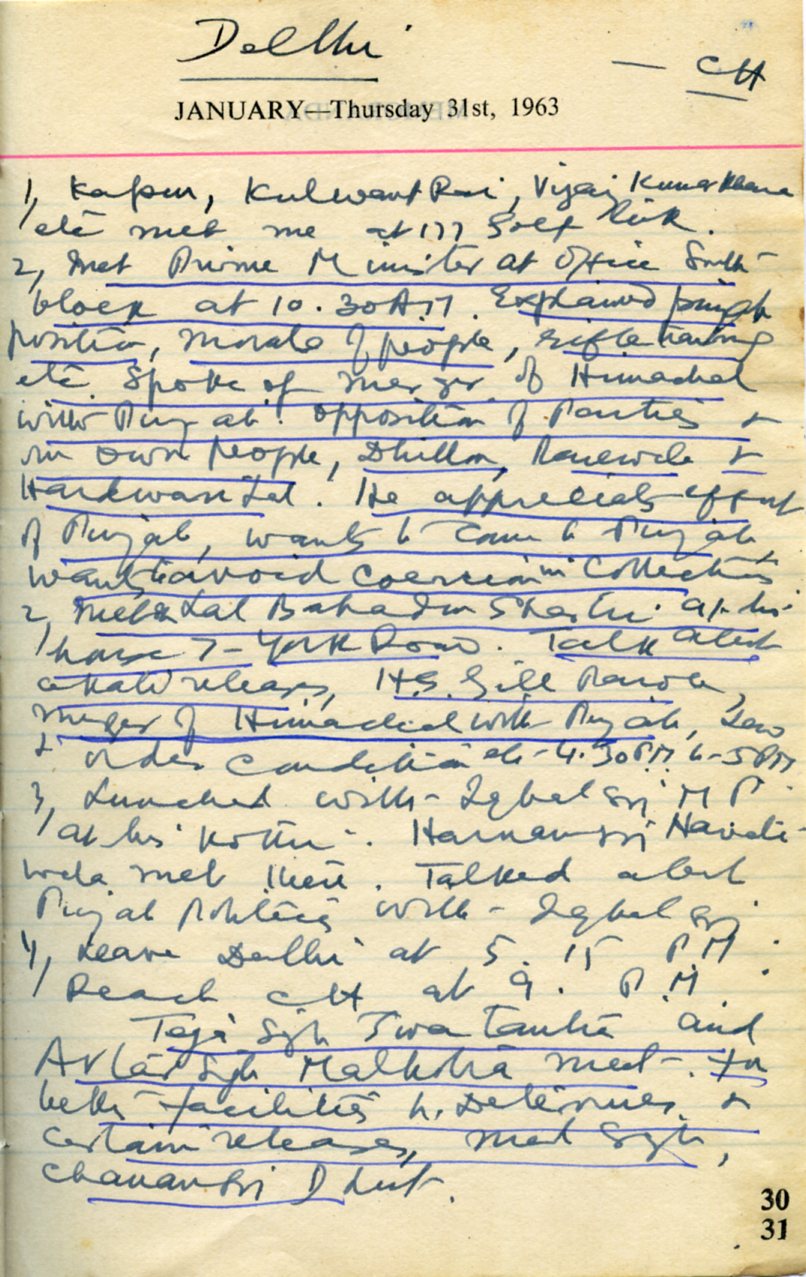 Delhi
— CH
JANUARY—Thursday 31st, 1963
1, Kapur, Kulwant Rai, Vijay Kumar Khanna
etc met me at 177 Golf link.
2, Met Prime Minister at Office South
block at 10.30 A.M. Explained punjab
position, morale of people, rifle training
etc. Spoke of merger of Himachal
with Punjab. Opposition of Parties &
our own people, Dhillon, Rarewala &
Hardwari Lal. He appreciates effort
of Punjab, wants to come to Punjab
wants to avoid coercion in Collections
2, Met Lal Bahadur Shastri at his
house 7- York Road. Talk about
akali releases, H.S. Gill Parole,
merger of Himachal with Punjab, Law
& order condition etc - 4.30 PM to - 5 PM
3, Lunched with - Iqbal Singh M P
at his Kothi -. Harnam Singh
met there. Talked about
Punjab Politics with - Iqbal Singh
4, Leave Delhi at 5.15 P.M.
Reach CH at 9. P.M.
Teja Singh Swatantra and
Avtar Singh Malhotra meet -. for
better facilities to Detenues &
certain releases, Singh,
Chanan Singh Dhut.
30
31